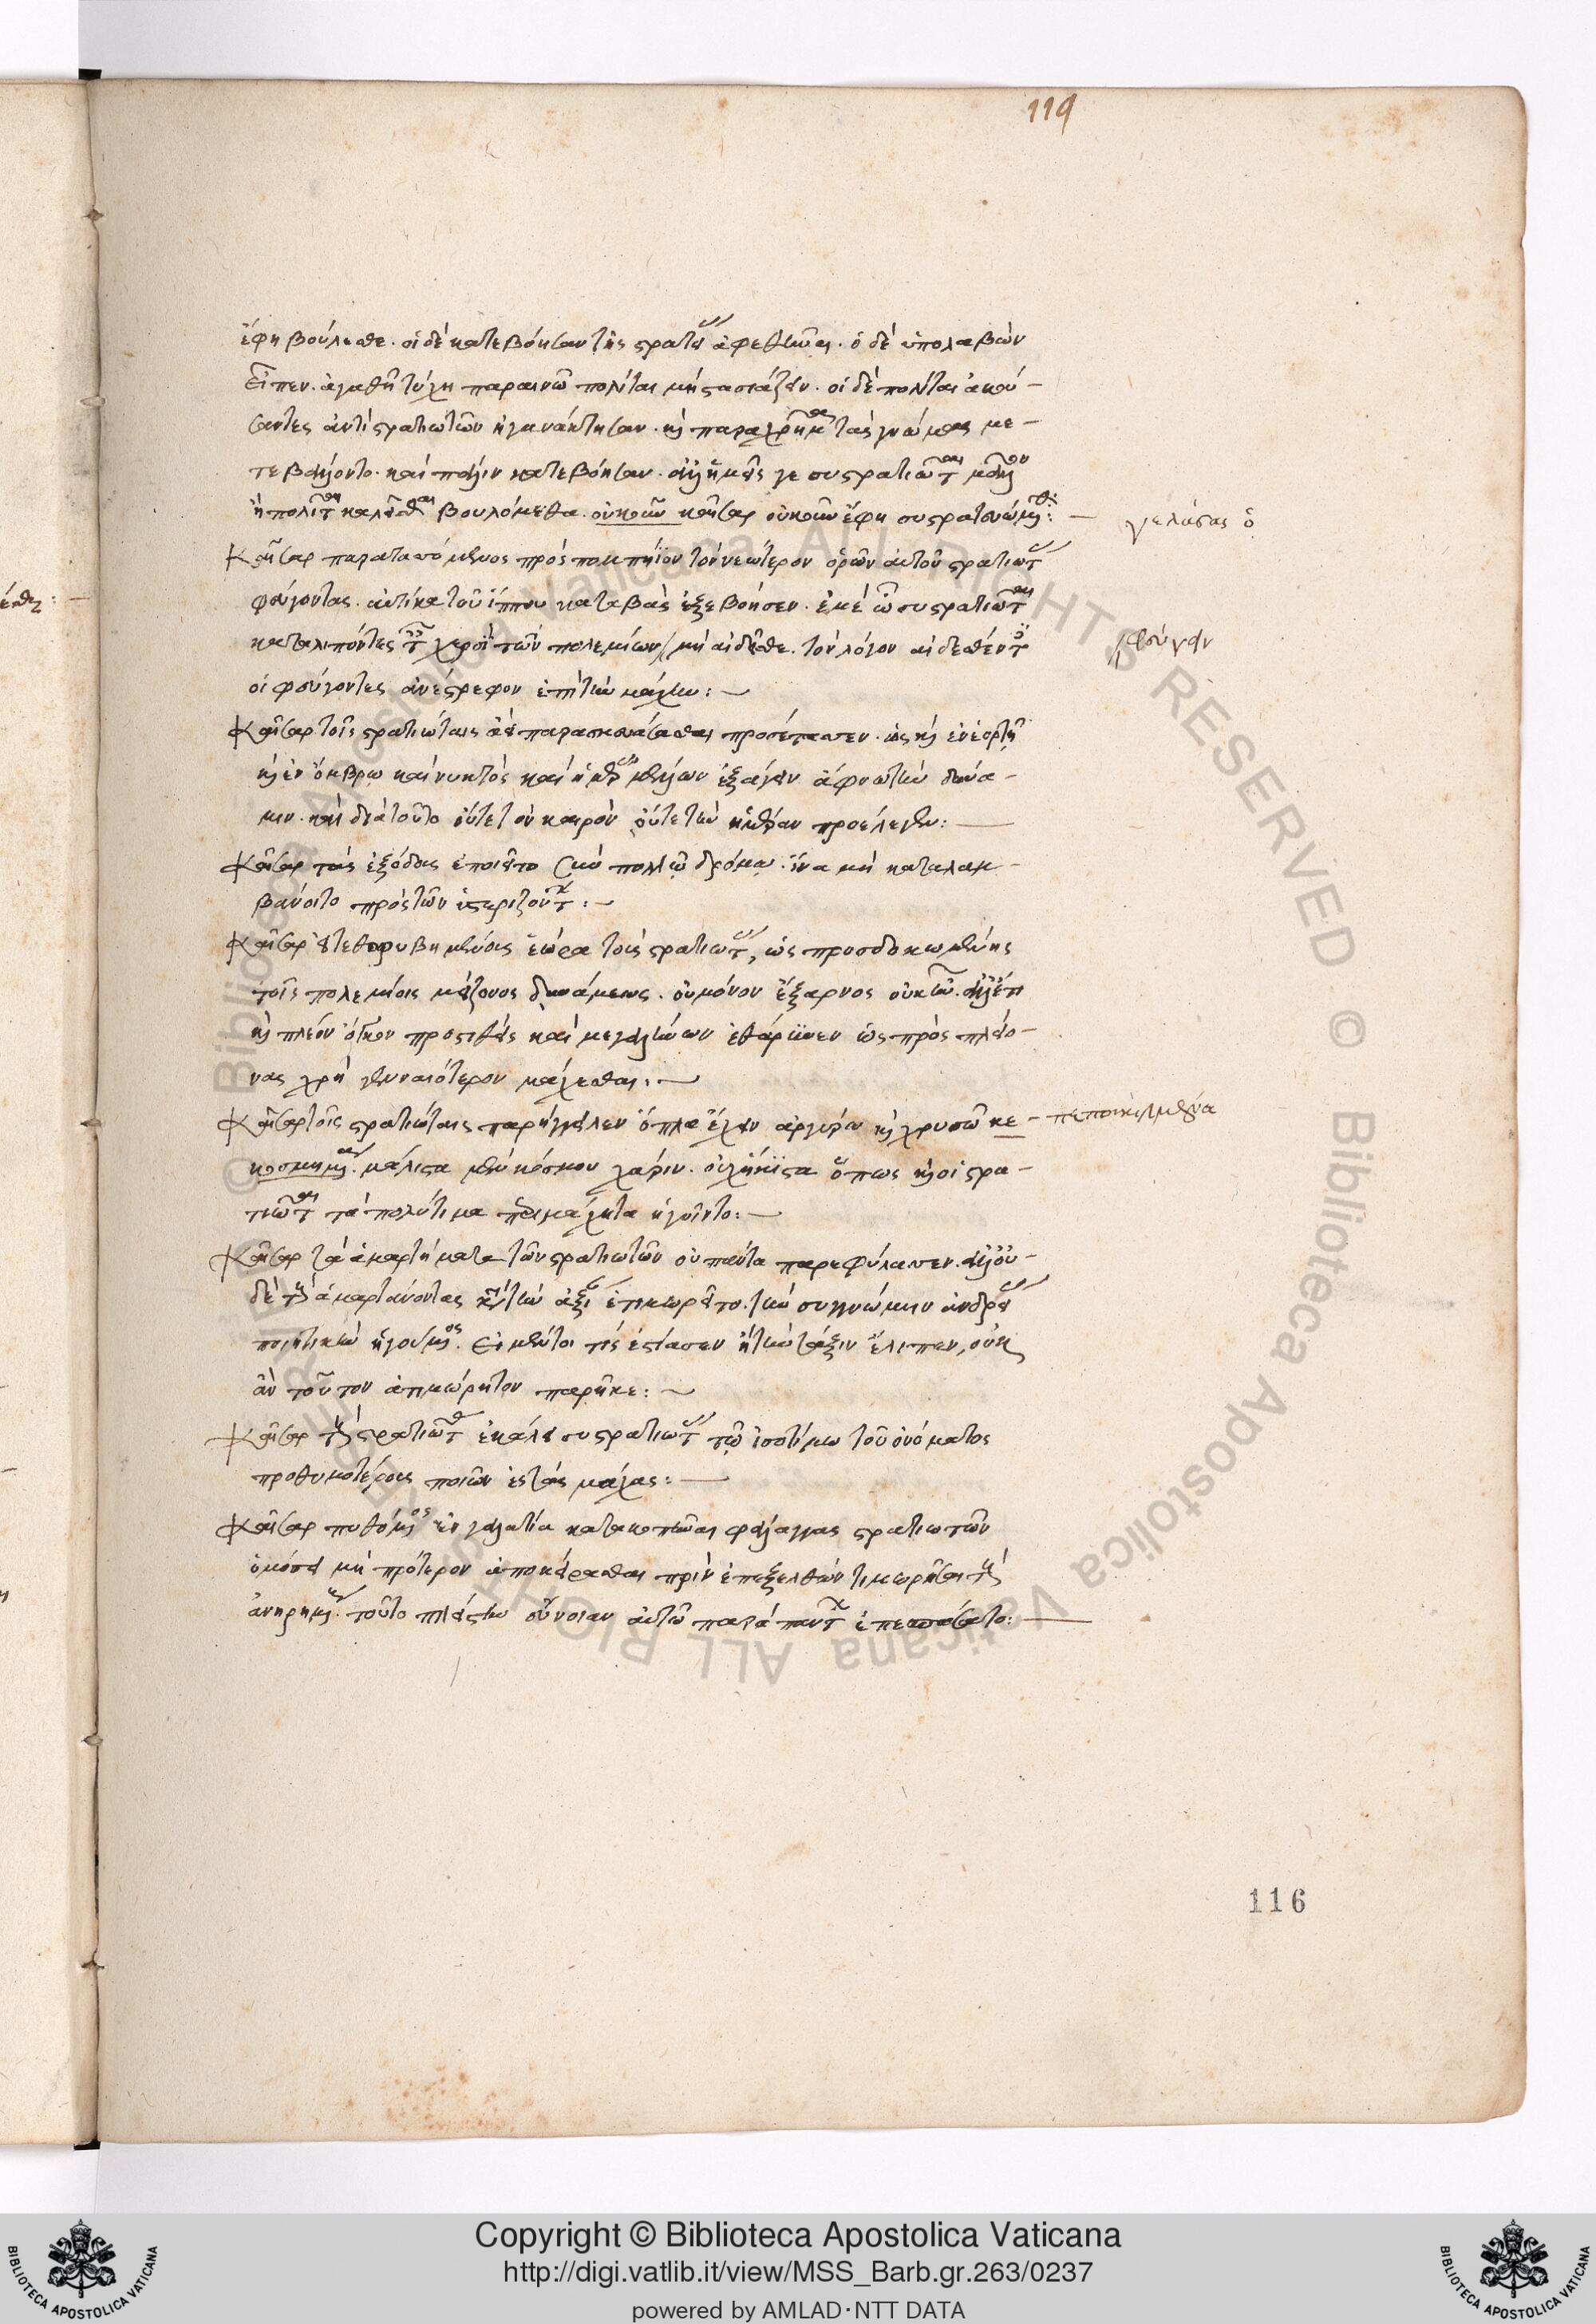 119
ἔφη βούλεσθε. οἱ δὲ κατεβόησαν τῆς στρατείας ἀφεθῆναι. ὁ δὲ ὑπολαβὼν
εἶπεν. ἀγαθῇ τύχῃ παραινῶ πολῖται μὴ στασιάζειν. οἱ δὲ πολῖται ἀκού-
σαντες ἀντὶ στρατιωτῶν ἠγανάκτησαν. καὶ παραχρῆμα τὰς γνώμας με-
τεβάλλοντο. καὶ πάλιν κατεβόησαν. ἀλλ' ἡμεῖς γε συστρατιῶται μᾶλλον
ἢ πολῖται καλεῖσθαι βουλόμεθα. οὐκοῦν καῖσαρ οὐκοῦν ἔφη συστρατευώμεθα: — γελάσας ὁ
Καῖσαρ παρατασσόμενος πρὸς πομπήϊον τὸν νεώτερον ὁρῶν αὐτοῦ στρατιώτας
φεύγοντας. αὐτίκα τοῦ ἵππου καταβὰς ἐξεβόησεν. ἐμὲ ὦ συστρατιῶται
καταλιπόντες ταῖς χερσὶ τῶν πολεμίων / μὴ αἰδεῖσθε. τὸν λόγον αἰδεσθέντες / φεύγειν
οἱ φεύγοντες ἀνέστρεφον ἐπὶ τὴν μάχην: —
Καῖσαρ τοῖς στρατιώταις ἀεὶ παρασκευάσασθαι προσέτασσεν. ὡς καὶ ἐν ἑορτῇ
καὶ ἐν ὄμβρῳ καὶ νυκτὸς καὶ ἡμέρας μέλλων ἐξάγειν ἄφνω τὴν δύνα-
μιν. καὶ διὰ τοῦτο οὔτε τὸν καιρὸν οὔτε τὴν ἡμέραν προέλεγεν: —
Καῖσαρ τὰς ἐξόδους ἐποιεῖτο σὺν πολλῷ δρόμῳ. ἵνα μὴ καταλαμ-
βάνοιτο πρὸς τῶν ὑστεριζόντων: —
Καῖσαρ εἰ τεθορυβημένους ἑώρα τοὺς στρατιώτας, ὡς προσδοκωμένης
τοῖς πολεμίοις μείζονος δυνάμεως. οὐ μόνον ἔξαρνος οὐκ ἦν. ἀλλ' ἔτι
καὶ πλέον ὄγκον προστιθεὶς καὶ μεγαλύνων ἐθάρρυνεν ὡς πρὸς πλείο-
νας χρὴ γενναιότερον μάχεσθαι: —
Καῖσαρ τοῖς στρατιώταις παρήγγελλεν ὅπλα ἔχειν ἀργύρῳ καὶ χρυσῷ κε- — πεποικιλμένα
κοσμημένα. μάλιστα μὲν κόσμου χάριν. οὐχ ἥκιστα ὅπως καὶ οἱ στρα-
τιῶται τὰ πολύτιμα περιμάχητα ἡγοῖντο: —
Καῖσαρ τὰ ἁμαρτήματα τῶν στρατιωτῶν οὐ πάντα παρεφύλασσεν. ἀλλ' οὐ-
δὲ τοὺς ἁμαρτάνοντας κατὰ τὴν ἀξίαν ἐτιμωρεῖτο. τὴν συγγνώμην ἀνδρείας
ποιητικὴν ἡγούμενος. εἰ μέντοι τις ἐστίασεν ἢ τὴν τάξιν ἔλιπεν, οὐκ
ἂν τοῦτον ἀτιμώρητον παρῆκε: —
Καῖσαρ τοὺς στρατιώτας ἐκάλει συστρατιώτας τῷ ἰσοτίμῳ τοῦ ὀνόματος
προθυμοτέρους ποιῶν ἐς τὰς μάχας: —
Καῖσαρ πυθόμενος ἐν γαλατίᾳ κατακοπῆναι φάλαγγας στρατιωτῶν
ὀμόσαι μὴ πρότερον ἀποκείρασθαι πρὶν ἐπεξελθὼν τιμωρῆσαι τοὺς
ἀνῃρημένους. τοῦτο πλείστην εὔνοιαν αὐτῷ παρὰ πάντων ἐπεσπάσατο: —
116
Copyright © Biblioteca Apostolica Vaticana
http://digi.vatlib.it/view/MSS_Barb.gr.263/0237
powered by AMLAD·NTT DATA